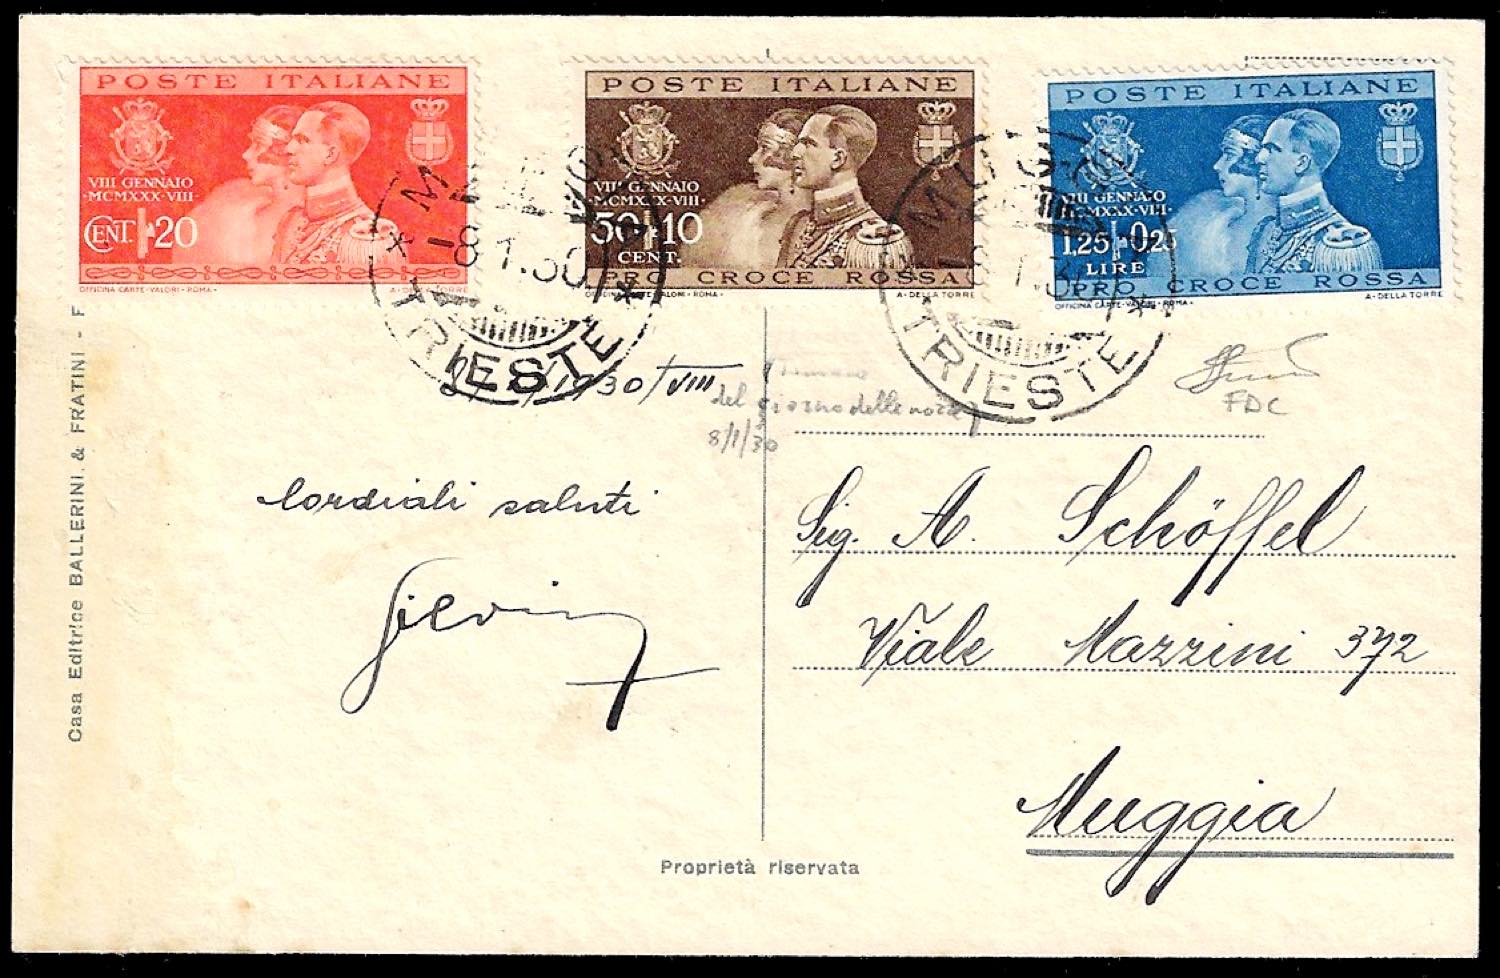 POSTE ITALIANE
VIII GENNAIO
MCMXXX·VIII·
CENT. 20
OFFICINA CARTE-VALORI - ROMA -
POSTE ITALIANE
VIII GENNAIO
·MCMXXX·VIII·
50+10
CENT.
PRO CROCE ROSSA
OFFICINA CARTE-VALORI - ROMA -
A·DELLA TORRE
POSTE ITALIANE
VIII GENNAIO
MCMXXX·VIII
1,25+0,25
LIRE
PRO CROCE ROSSA
OFFICINA CARTE-VALORI - ROMA -
A·DELLA TORRE
MUGGIA
-8.1.30
TRIESTE
MUGGIA
TRIESTE
8/1/1930/VIII
del giorno delle nozze
8/1/30
FDC
Cordiali saluti
Sig. A. Schöffel
Viale Mazzini 372
Muggia
Casa Editrice BALLERINI & FRATINI - F
Proprietà riservata